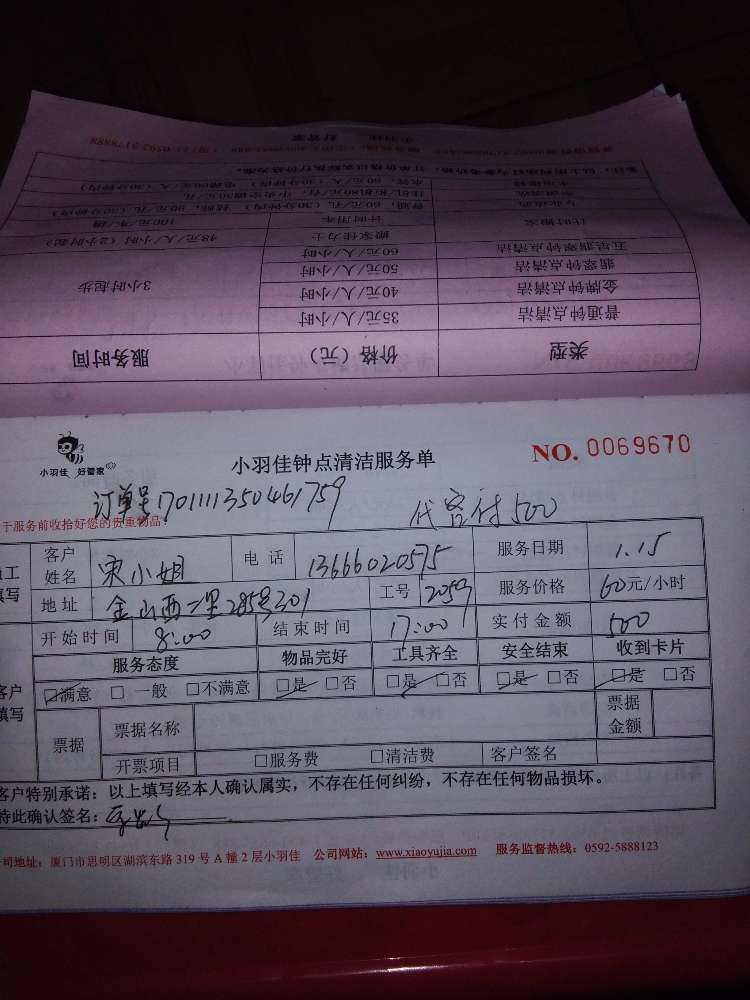 小羽佳 好管家
类型 价格（元） 服务时间
普通钟点清洁 35元/人/小时 3小时起步
金牌钟点清洁 40元/人/小时
翡翠钟点清洁 50元/人/小时
五星翡翠钟点清洁 60元/人/小时
计时搬家 搬家佳力士 48元/人/小时（2小时起）
计时用车 100元/车/趟
小羽佳 好管家
小羽佳钟点清洁服务单 NO. 0069670
订单号170111135046l759 代客付500
于服务前收拾好您的贵重物品
员工填写 客户姓名 宋小姐 电话 13666020575 服务日期 1.15
地址 金山西二里285号301 工号 2059 服务价格 60元/小时
开始时间 8:00 结束时间 17:00 实付金额 500
服务态度 物品完好 工具齐全 安全结束 收到卡片
客户填写 □满意 □一般 □不满意 □是 □否 □是 □否 □是 □否 □是 □否
票据 票据名称 票据金额
开票项目 □服务费 □清洁费 客户签名
客户特别承诺：以上填写经本人确认属实，不存在任何纠纷，不存在任何物品损坏。
特此确认签名：
公司地址：厦门市思明区湖滨东路 319 号 A 幢 2 层小羽佳 公司网站：www.xiaoyujia.com 服务监督热线：0592-5888123